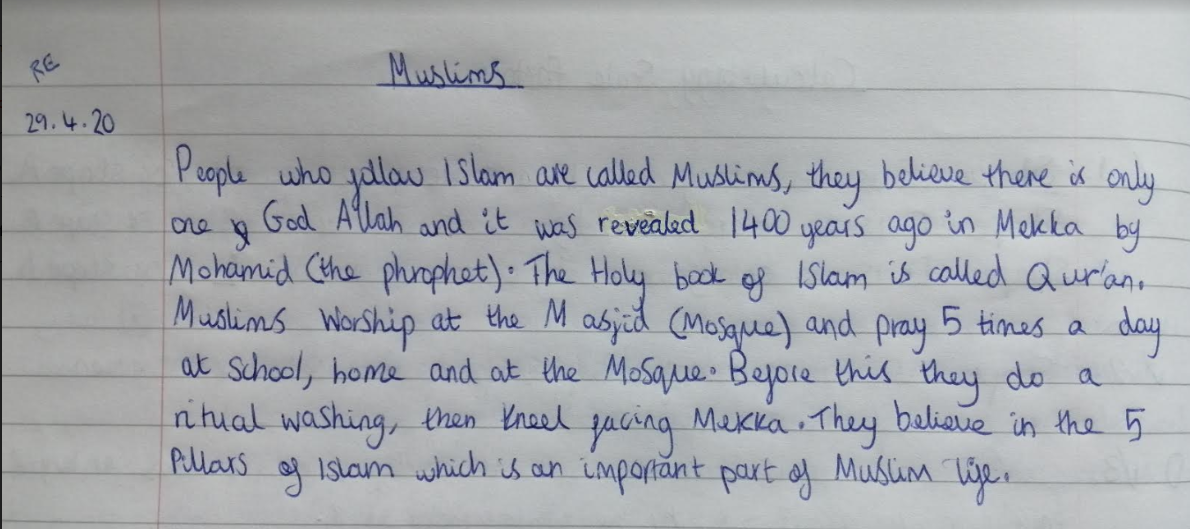 RE
Muslims
29.4.20
People who follow Islam are called Muslims, they believe there is only
one God Allah and it was revealed 1400 years ago in Mekka by
Mohamid (the phrophet). The Holy book of Islam is called Qur'an.
Muslims Worship at the Masjid (Mosque) and pray 5 times a day
at School, home and at the Mosque. Before this they do a
ritual washing, then kneel facing Mekka. They believe in the 5
Pillars of Islam which is an important part of Muslim life.